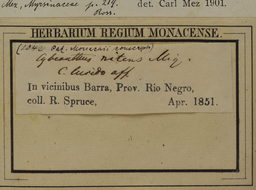 Mez, Myrsinaceae p. 219. det. Carl Mez 1901.
HERBARIUM REGIUM MONACENSE.
Cybianthus nitens Miq.
C. lucido aff.
In vicinibus Barra, Prov. Rio Negro,
coll. R. Spruce, Apr. 1851.